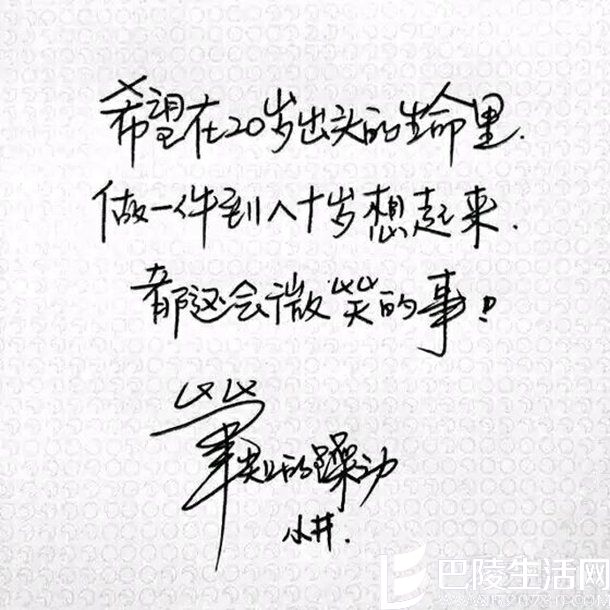 希望在20岁出头的生命里.
做一件到八十岁想起来.
都还会微笑的事!
笔尖上的躁动
小井.
巴陵生活网